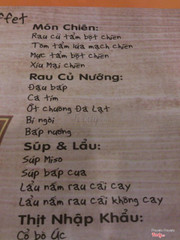 ffet
Món Chiên:
Rau củ tẩm bột chiên
Tôm tẩm lúa mạch chiên
Mực tẩm bột chiên
Xíu Mại chiên
Rau Củ Nướng:
Đậu bắp
Cà tím
Ớt chuông Đà Lạt
Bí ngòi
Bắp nướng
Súp & Lẩu:
Súp Miso
Súp bắp cua
Lẩu nấm rau cải cay
Lẩu nấm rau cải không cay
Thịt Nhập Khẩu:
Cổ bò Úc